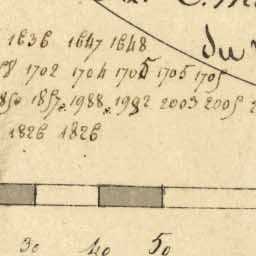 du
1636 1647 1648
1702 1704 1705 1705 1705
1857. 1988. 1992 2003 2005
1826 1826
30 40 50